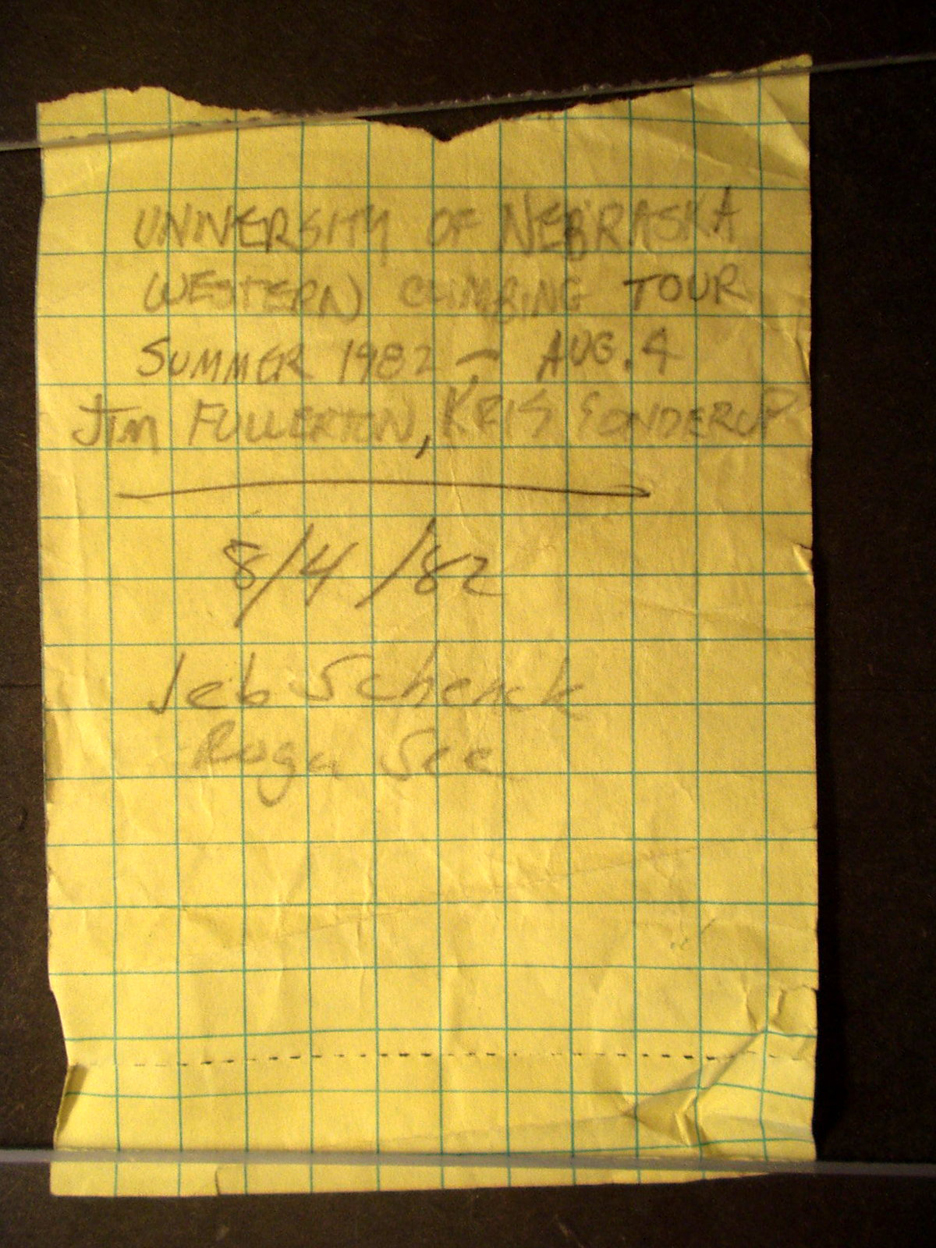 UNIVERSITY OF NEBRASKA
WESTERN CLIMBING TOUR
SUMMER 1982 — AUG. 4
JIM FULLERTON, KRIS SONDERUP
8/4/82
Jeb Schenck
Roger See